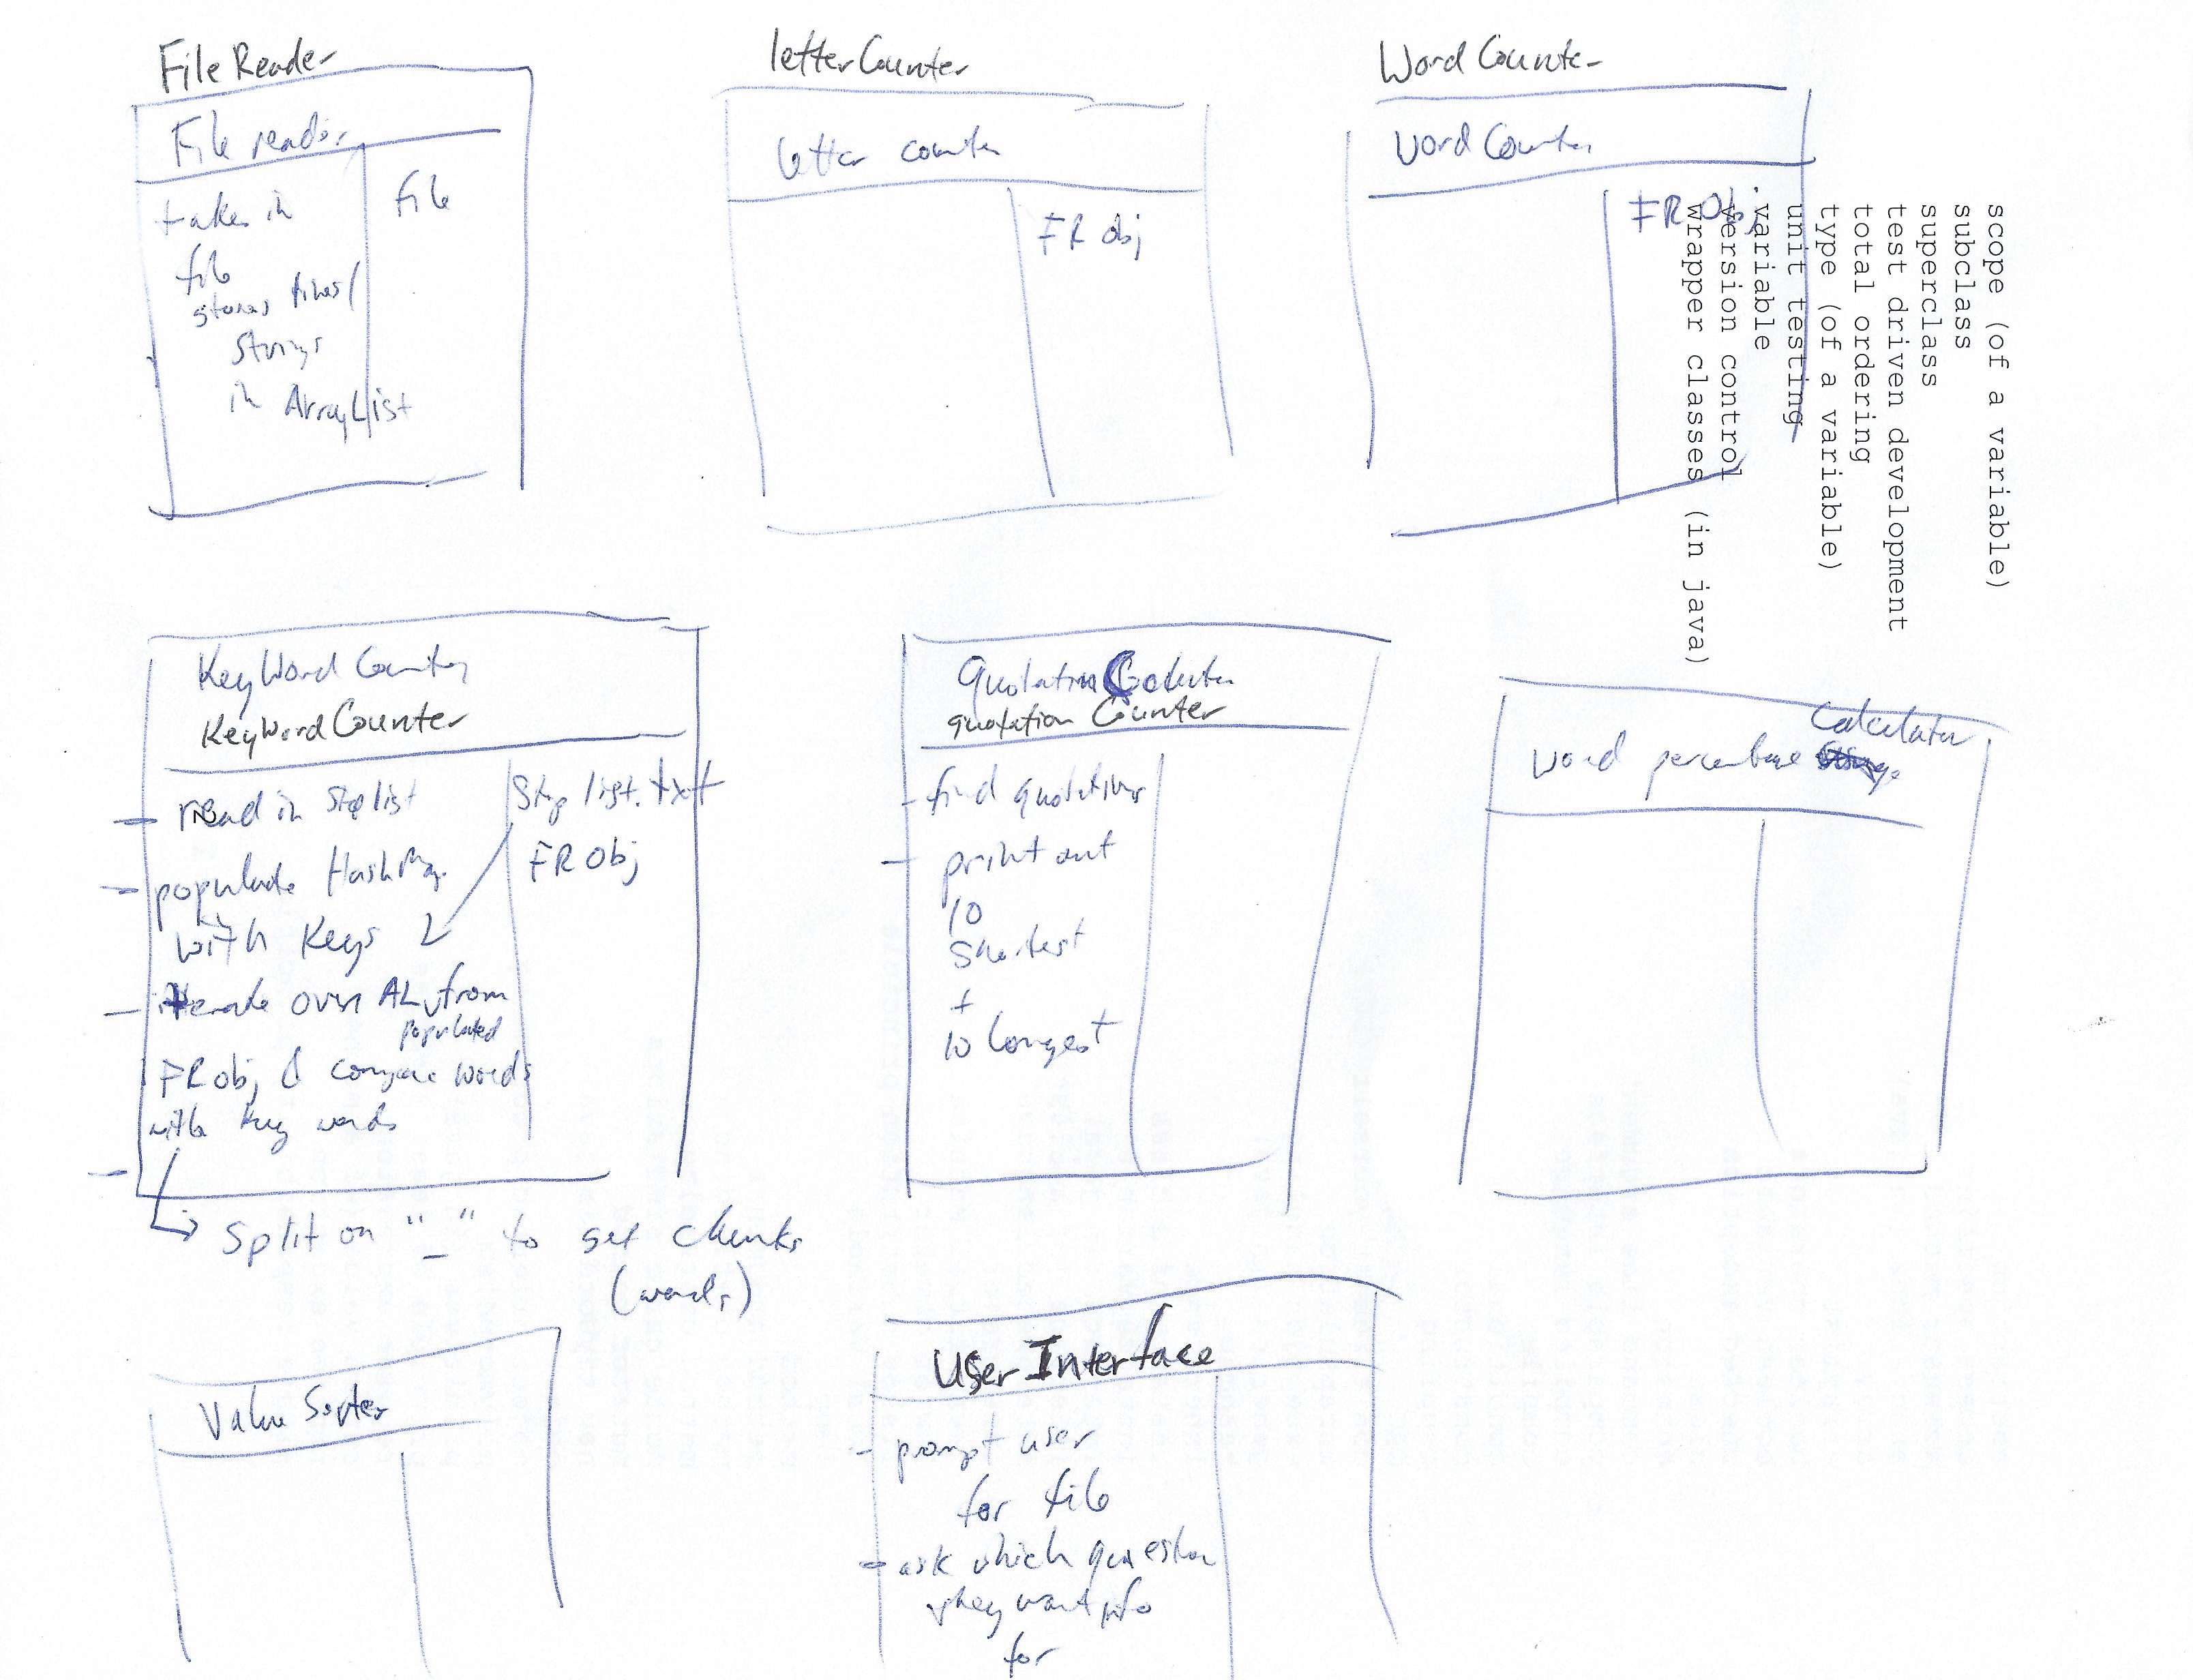 File Reader
File reader
takes in
file
stores lines/
Strings
in ArrayList
File
letterCounter
letter counter
FR obj
Word Counter
Word Counter
FR Obj
scope (of a variable)
subclass
superclass
test driven development
total ordering
type (of a variable)
unit testing
variable
version control
wrapper classes (in java)
KeyWord Counter
KeyWord Counter
- read in stop list
- populate HashMap
with keys
- iterate over AL from
populated
FR obj & compare words
with key words
Stop list.txt
FR Obj
Split on "_" to get chunks
(words)
Quotation Counter
quotation Counter
- find quotations
- print out
10
Shortest
+
10 longest
Calculator
Word percentage
Value Sorter
User Interface
- prompt user
for file
- ask which question
they want info
for